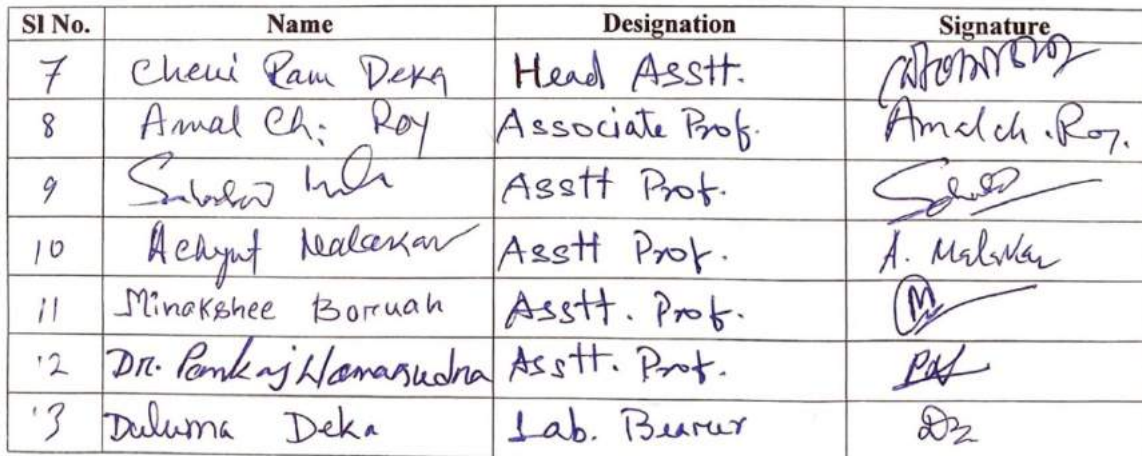 Sl No. Name Designation Signature
7 Cheni Ram Deka Head Asstt.
8 Amal Ch. Roy Associate Prof. Amal ch. Roy.
9 Asstt Prof.
10 Achyut Malakar Asstt Prof. A. Malakar
11 Minakshee Borruah Asstt. Prof. M
12 Dr. Pankaj Asstt. Prof.
13 Duluma Deka Lab. Bearer